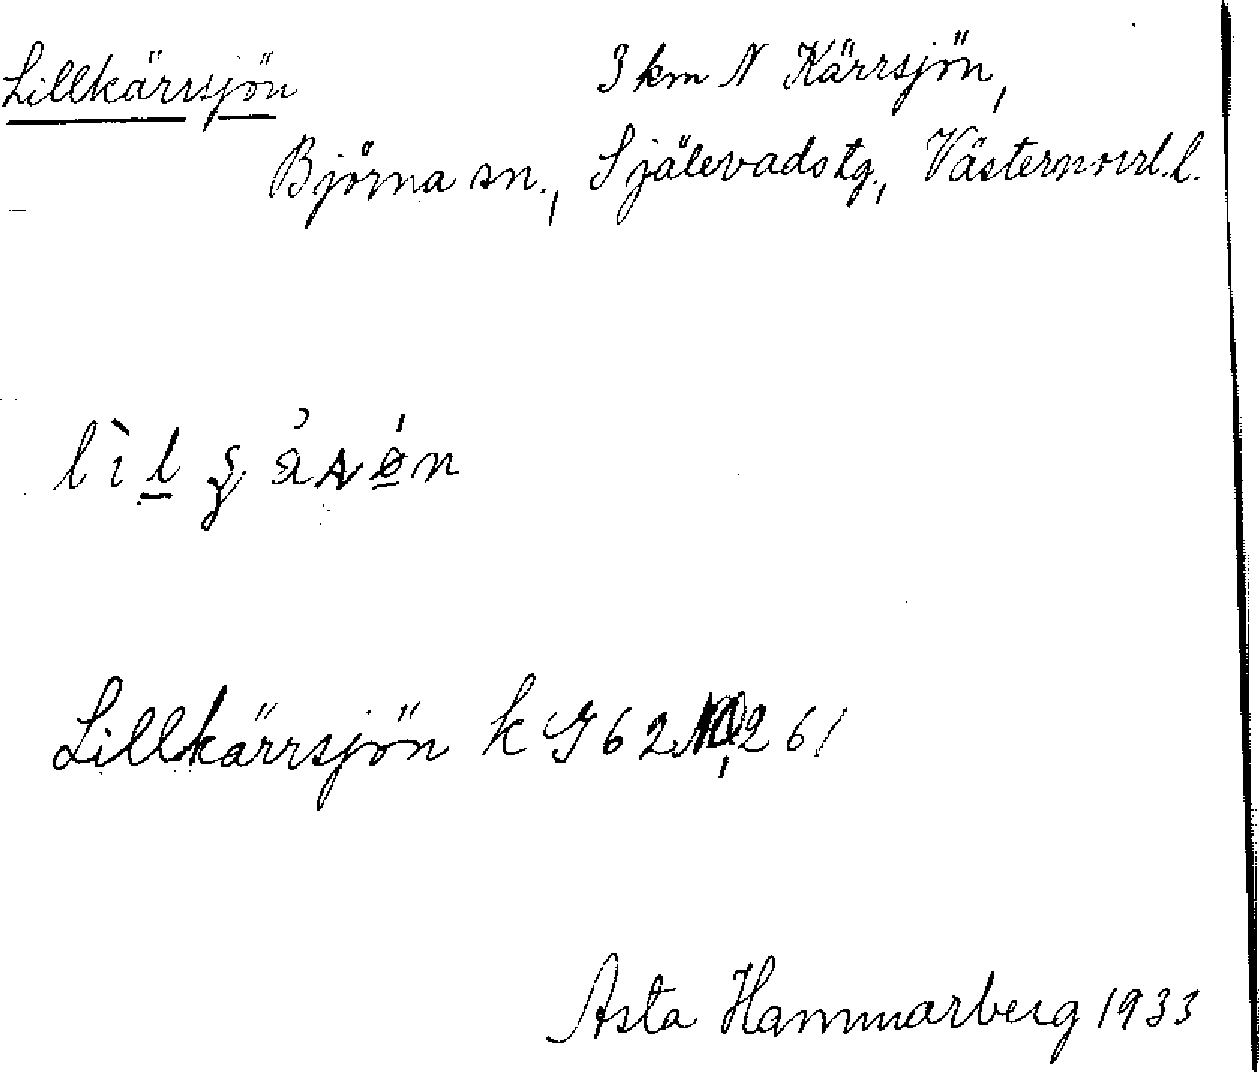 Lillkärrsjön 3 km N Kärrsjön,
Björna sn., Själevads tg., Västernorrl. l.
Lillkärrsjön k G62 261
Asta Hammarberg 1933